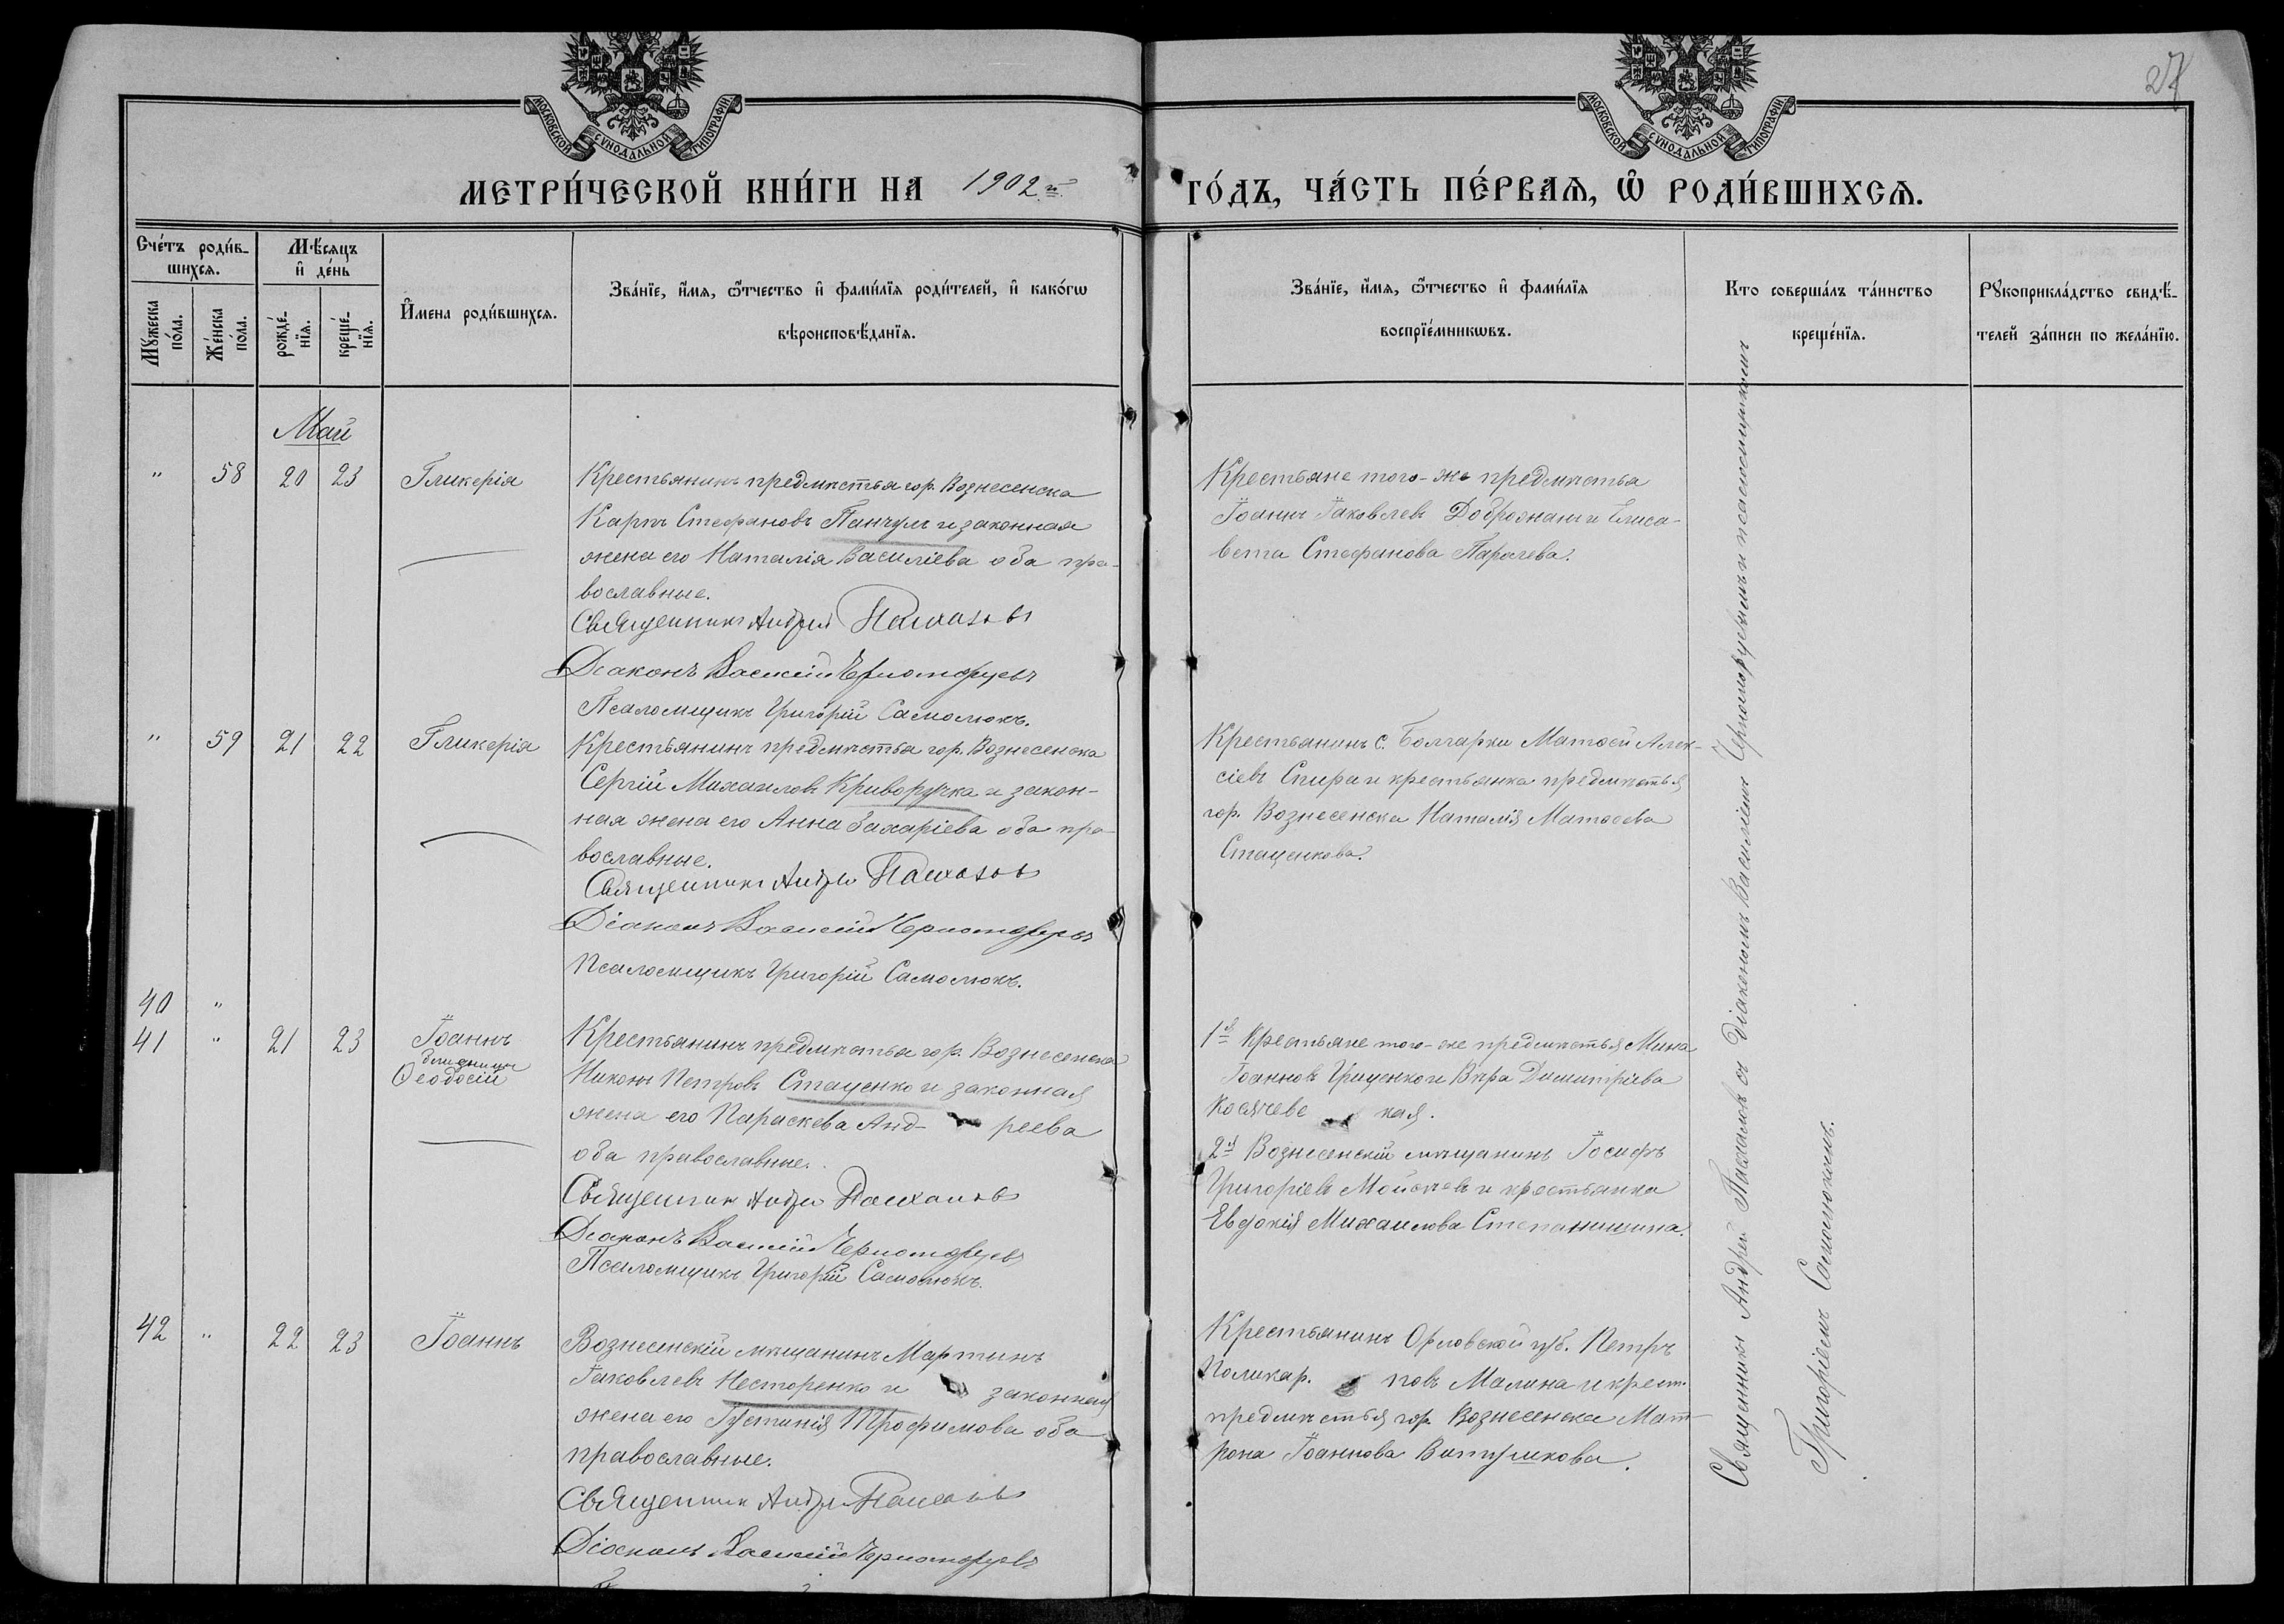 МОСКОВСКОЙ СѴНОДАЛЬНОЙ ТИПОГРАФІИ
МОСКОВСКОЙ СѴНОДАЛЬНОЙ ТИПОГРАФІИ
27
МЕТРИ́ЧЕСКОЙ КНИ́ГИ НА 1902 й
ГО́ДЪ, ЧА́СТЬ ПЕ́РВАѦ, Ѡ҆ РОДИ́ВШИХСѦ.
Сче́тъ роди́в-
шихсѧ.
Мѣ́сѧцъ
и҆ де́нь
Мꙋ́жеска
по́ла.
Же́нска
по́ла.
рожде́-
нїѧ.
креще́-
нїѧ.
И҆мена роди́вшихсѧ.
Зва́нїе, и҆́мѧ, ѻ҆́тчество и҆ фами́лїѧ роди́телей, и҆ како́гѡ
вѣроисповѣ́данїѧ.
Зва́нїе, и҆́мѧ, ѻ҆́тчество и҆ фами́лїѧ
воспрїе́мникѡвъ.
Кто соверша́лъ та́инство
креще́нїѧ.
Рꙋкоприкла́дство свидѣ́-
телей за́писи по жела́нїю.
Май
" 58 20 23 Гликерія
Крестьянинъ предмѣстья гор. Вознесенска
Карпъ Стефановъ Панчулъ и законная
жена его Наталія Василіева оба пра-
вославные.
Священникъ Андрей
Діаконъ Василій
Псаломщикъ Григорій Самолюкъ.
Крестьяне того-же предмѣстья
Іоаннъ Іаковлевъ Доброжанъ и Елиса-
вета Стефанова
" 59 21 22 Гликерія
Крестьянинъ предмѣстья гор. Вознесенска
Сергій Михаиловъ Криворучка и закон-
ная жена его Анна Захаріева оба пра-
вославные.
Священникъ Андрей
Діаконъ Василій
Псаломщикъ Григорій Самолюкъ.
Крестьянинъ с. Болгарки Матѳей Алек-
сіевъ Спира и крестьянка предмѣстья
гор. Вознесенска Наталія Матѳеева
Стаценкова.
40 "
41 " 21 23 Іоаннъ
близнецы
Ѳеодосій
Крестьянинъ предмѣстья гор. Вознесенска
Никонъ Петровъ Стаценко и законная
жена его Параскева Анд- реева
оба православные.
Священникъ Андрей
Діаконъ Василій
Псаломщикъ Григорій Самолюкъ.
1й Крестьяне того-же предмѣстья Мина
Іоанновъ Гриценко и Вѣра Димитріева
Косячевс кая.
2й Вознесенскій мѣщанинъ Іосифъ
Григоріевъ и крестьянка
Евдокія Михаилова Степанишина.
42 " 22 23 Іоаннъ
Вознесенскій мѣщанинъ Мартинъ
Іаковлевъ Несторенко и законная
жена его Іустинія Трофимова оба
православные.
Священникъ Андрей
Діаконъ Василій
Крестьянинъ Орловской губ. Петръ
Поликар. повъ Малина и крест.
предмѣстья гор. Вознесенска Мат-
рона Іоаннова
Священникъ Андрей съ Діакономъ Василіемъ и псаломщикомъ
Григоріемъ Самолюкомъ.